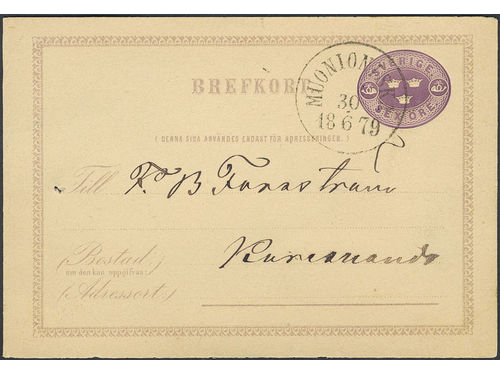 SVERIGE
SEX ÖRE
BREFKORT
MUONION
30
18 6 79
( DENNA SIDA ANVÄNDES ENDAST FÖR ADRESSERINGEN. )
Till
(Bostad:)
om den kan uppgifvas:
Karesuando
(Adressort:)